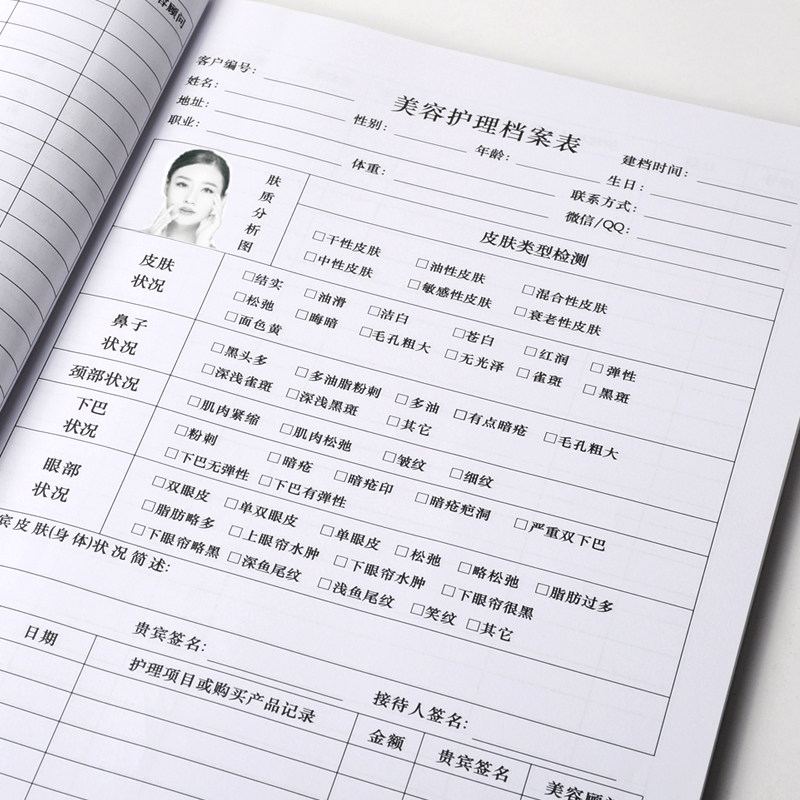 美容顾问
客户编号:
美容护理档案表
建档时间:
姓名: 性别: 年龄: 生日:
地址: 联系方式:
职业: 体重: 微信/QQ:
肤质分析图
皮肤类型检测
□干性皮肤 □油性皮肤 □混合性皮肤
□中性皮肤 □敏感性皮肤 □衰老性皮肤
皮肤状况
□结实 □油滑 □洁白 □苍白 □红润 □弹性
□松弛 □晦暗 □毛孔粗大 □无光泽 □雀斑 □黑斑
□面色黄
鼻子状况
□黑头多 □多油脂粉刺 □多油 □有点暗疮 □毛孔粗大
□深浅雀斑 □深浅黑斑 □其它
颈部状况
□肌肉紧缩 □肌肉松弛 □皱纹 □细纹
下巴状况
□粉刺 □暗疮 □暗疮印 □暗疮疤洞 □严重双下巴
□下巴无弹性 □下巴有弹性
眼部状况
□双眼皮 □单双眼皮 □单眼皮 □松弛 □略松弛 □脂肪过多
□脂肪略多 □上眼帘水肿 □下眼帘水肿 □下眼帘很黑
□下眼帘略黑 □深鱼尾纹 □浅鱼尾纹 □笑纹 □其它
宾皮肤(身体)状况简述:
贵宾签名: 接待人签名:
日期 护理项目或购买产品记录 金额 贵宾签名 美容顾